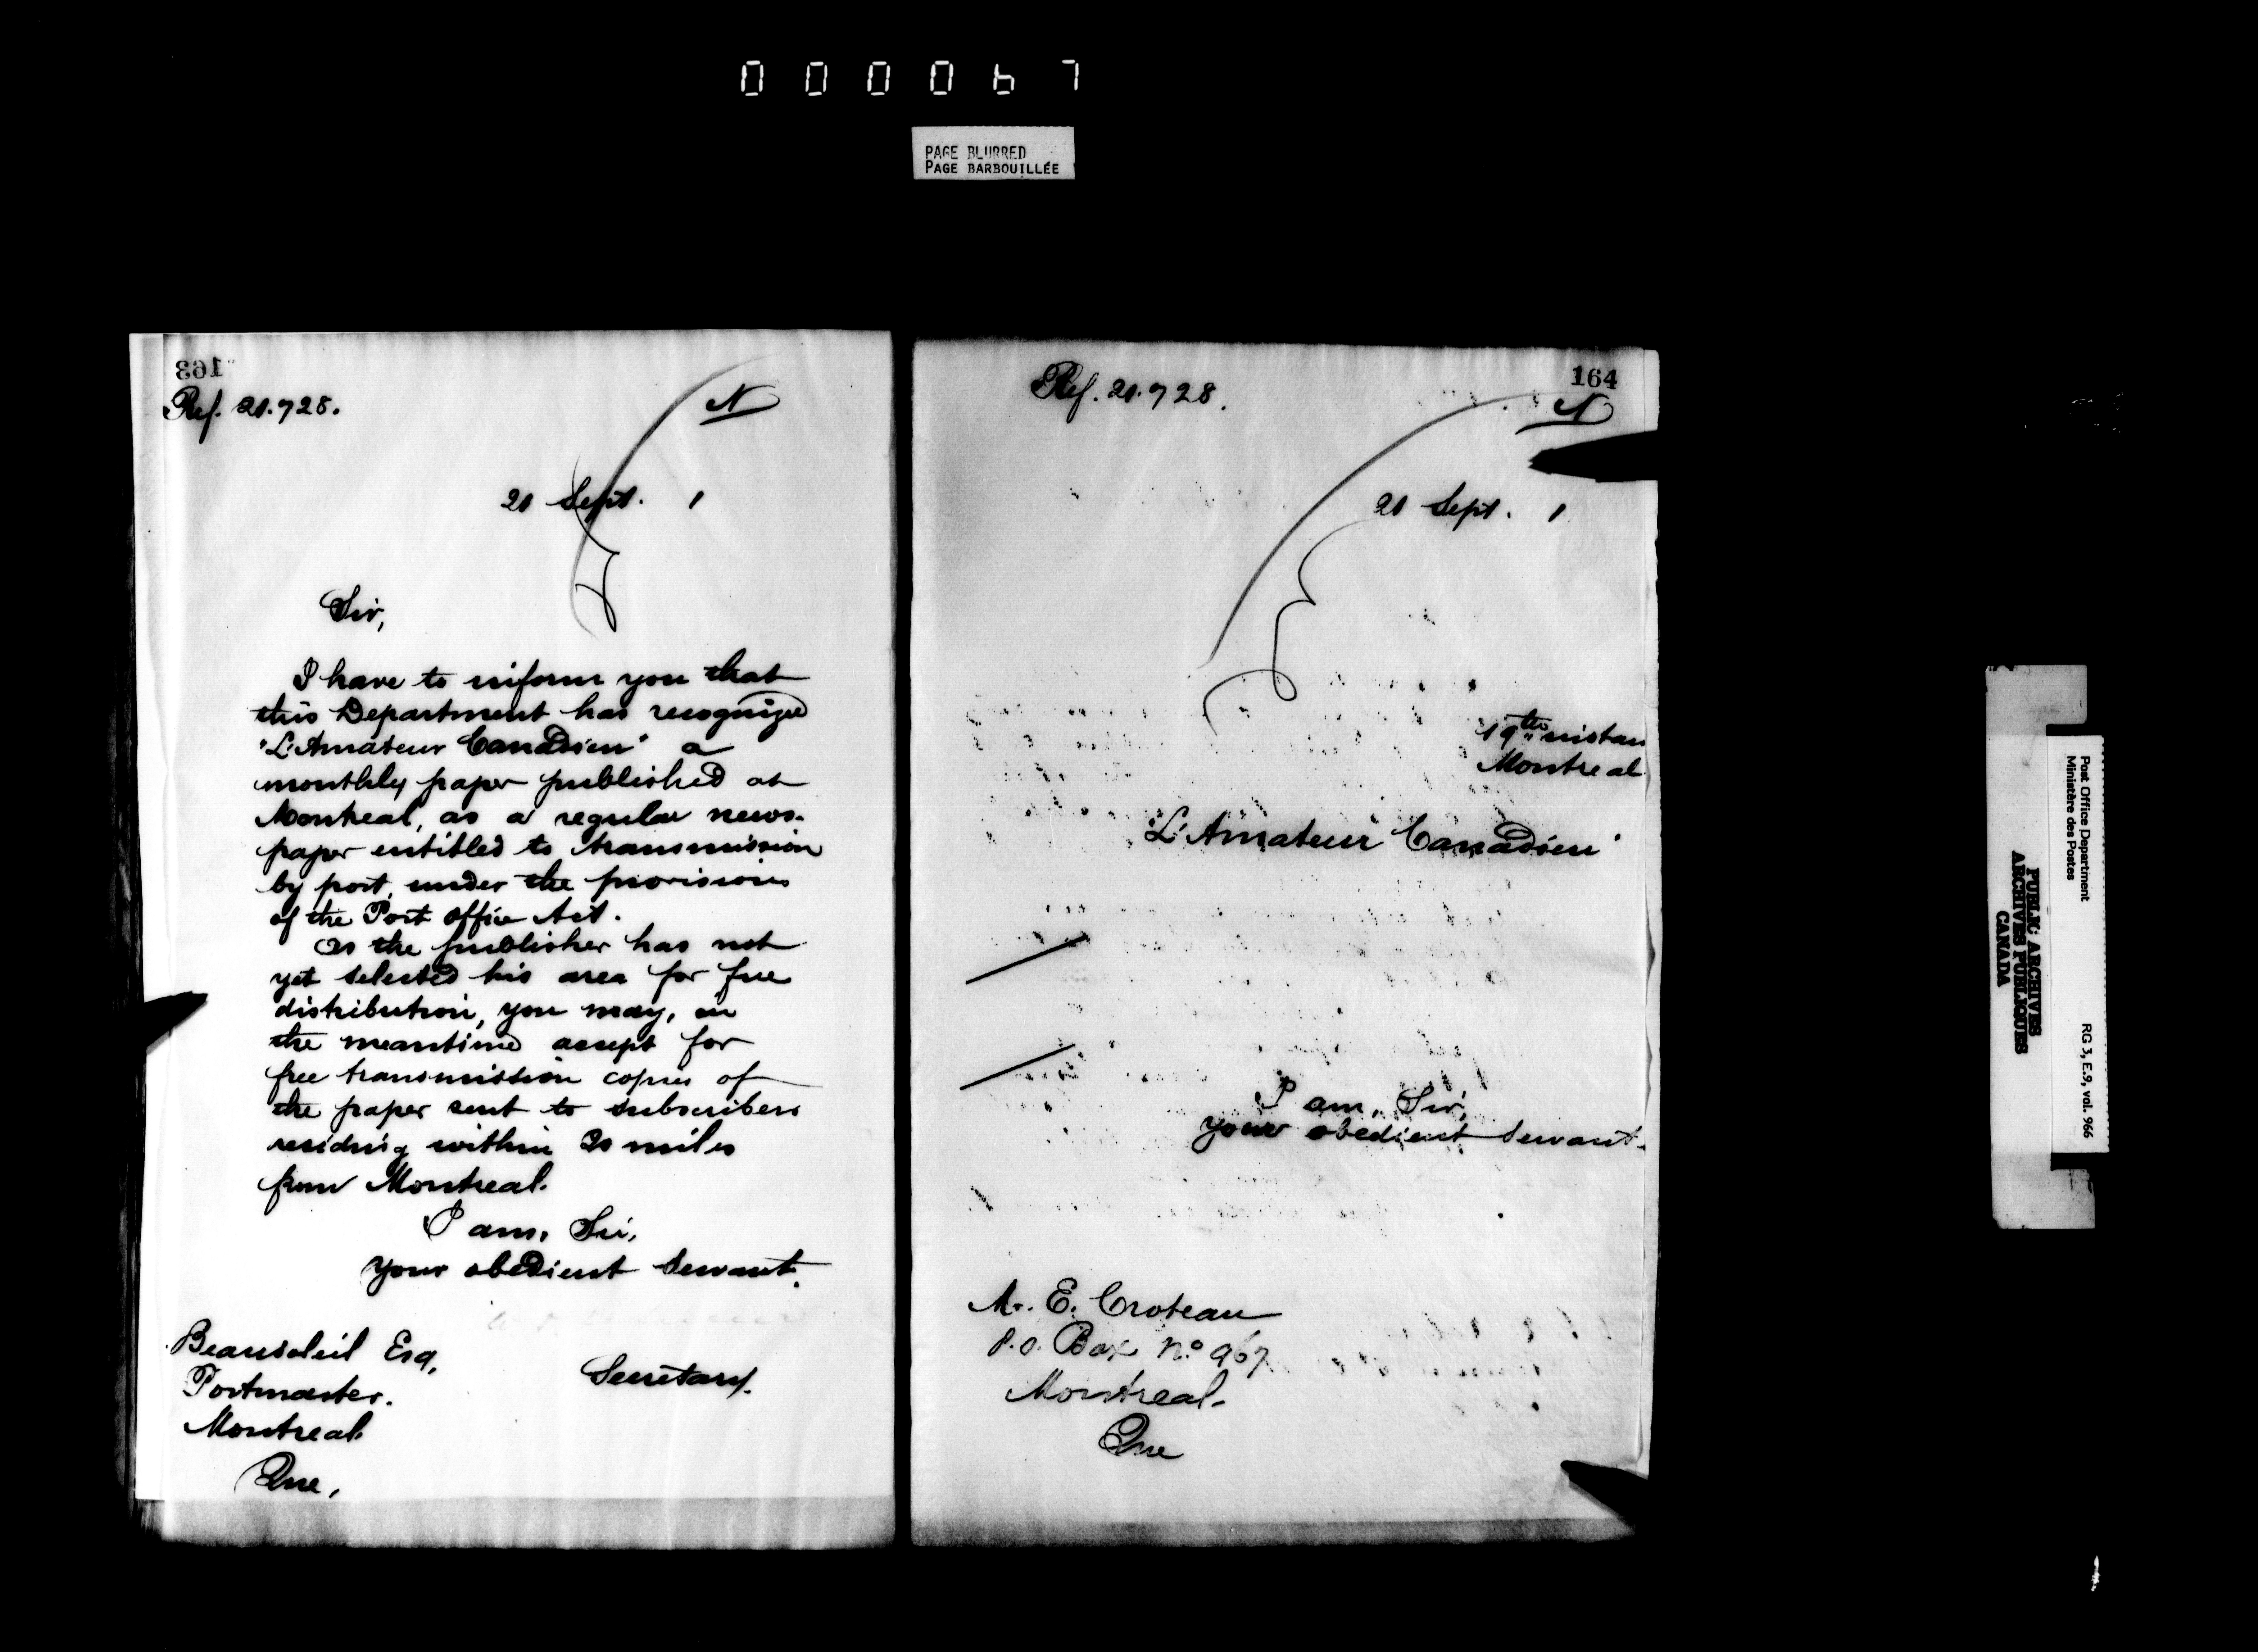 000067
PAGE BLURRED
PAGE BARBOUILLÉE
163
Ref. 21.728.
N
21 Sept. 1
Sir,
I have to inform you that
this Department has recognized
"L'Amateur Canadien" a
monthly paper published at
Montreal, as a regular news-
paper entitled to transmission
by post, under the provisions
of the Post Office Act.
As the publisher has not
yet selected his area for free
distribution, you may, in
the meantime accept for
free transmission copies of
the paper sent to subscribers
residing within 20 miles
from Montreal.
I am, Sir,
Your obedient Servant.
Secretary.
Beausoleil Esq,
Postmaster.
Montreal
Que,
164
Ref. 21.728.
N
21 Sept. 1
19th instan
Montreal
"L'Amateur Canadien"
I am, Sir,
Your obedient Servant.
Mr. E. Croteau
P.O. Box No 967
Montreal.
Que
Post Office Department
Ministère des Postes
RG 3, E.9, vol. 966
PUBLIC ARCHIVES
ARCHIVES PUBLIQUES
CANADA